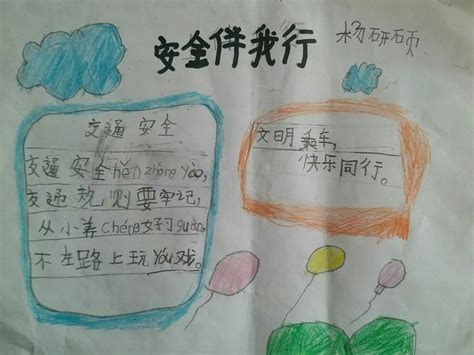 安全伴我行
杨研硕
交通 安全
交通安全hěn zhòng yào,
交通规则要牢记,
从小养chéng好习guàn,
不在路上玩yóu戏。
文明乘车,
快乐同行。